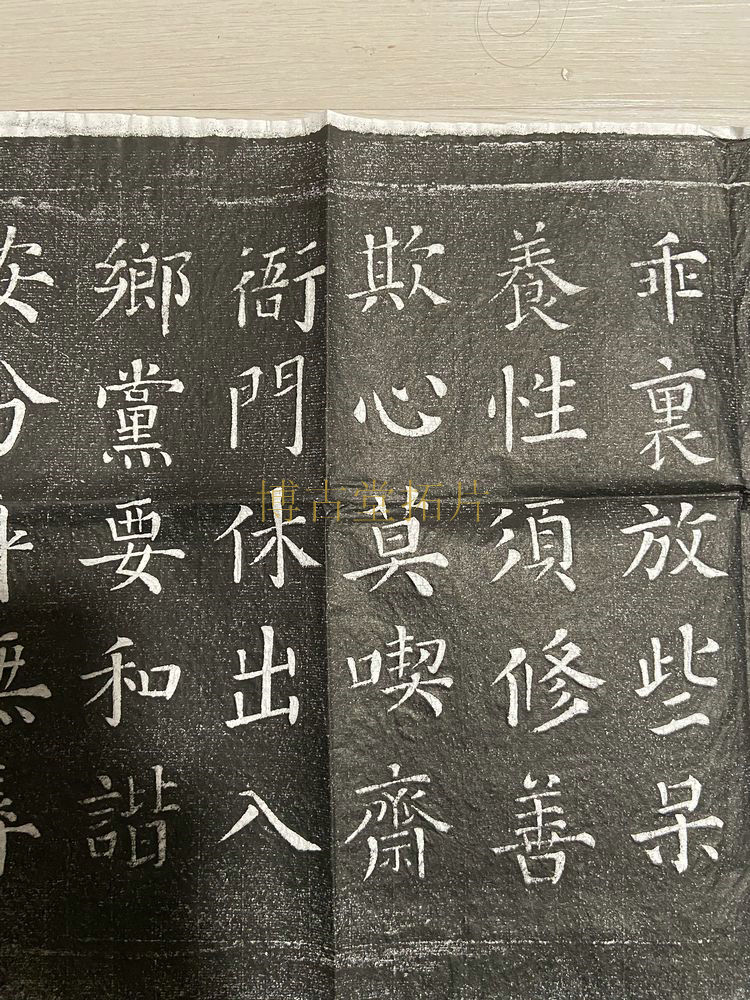 乖裏放些呆
養性須修善
欺心莫喫齋
衙門休出入
鄉黨要和諧
安分無辱
博古堂拓片